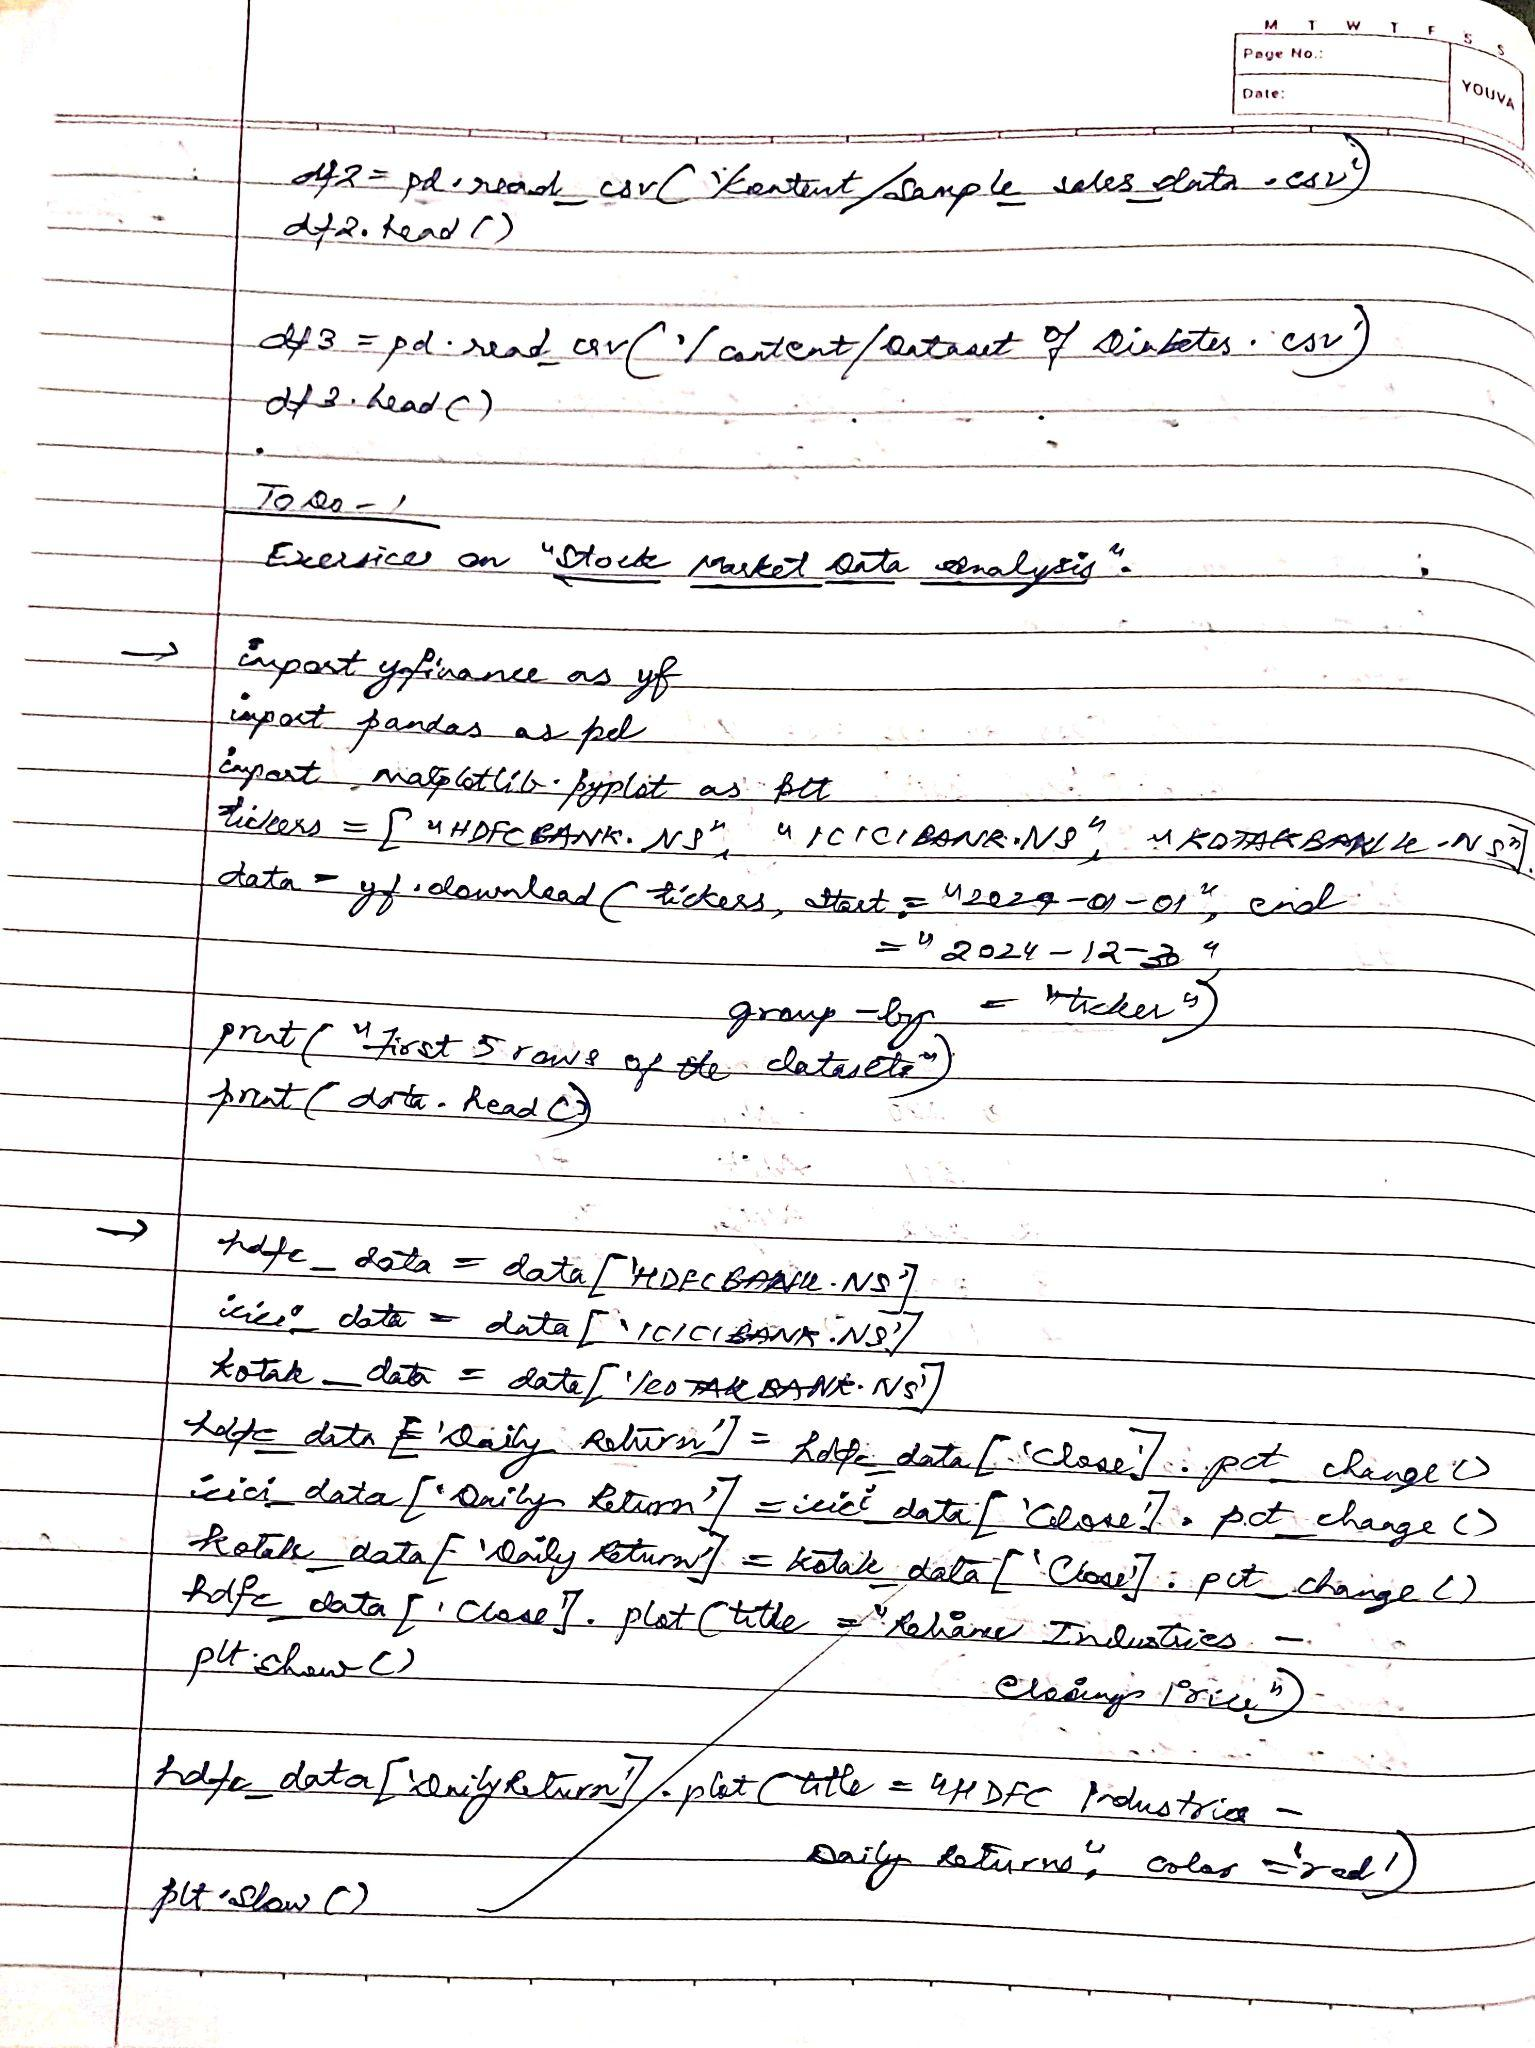 M T W T F S S
Page No.:
YOUVA
Date:
df2 = pd.read_csv('/content/Sample_sales_data.csv')
df2.head()
df3 = pd.read_csv('/content/Dataset of Diabetes.csv')
df3.head()
To Do - 1
Exersices on "Stock Market Data Analysis".
→ import yfinance as yf
import pandas as pd
import matplotlib.pyplot as plt
tickers = ["HDFCBANK.NS", "ICICIBANK.NS", "KOTAKBANK.NS"]
data = yf.download(tickers, start = "2024-01-01", end
= "2024-12-30"
group-by = "ticker")
print("First 5 rows of the dataset:")
print(data.head())
→ hdfc_data = data['HDFCBANK.NS']
icici_data = data['ICICIBANK.NS']
kotak_data = data['KOTAKBANK.NS']
hdfc_data['Daily Return'] = hdfc_data['Close'].pct_change()
icici_data['Daily Return'] = icici_data['Close'].pct_change()
kotak_data['Daily Return'] = kotak_data['Close'].pct_change()
hdfc_data['Close'].plot(title = "Reliance Industries -
plt.show() Closing Price")
hdfc_data['Daily Return'].plot(title = "HDFC Industries -
Daily Returns", color = 'red')
plt.show()